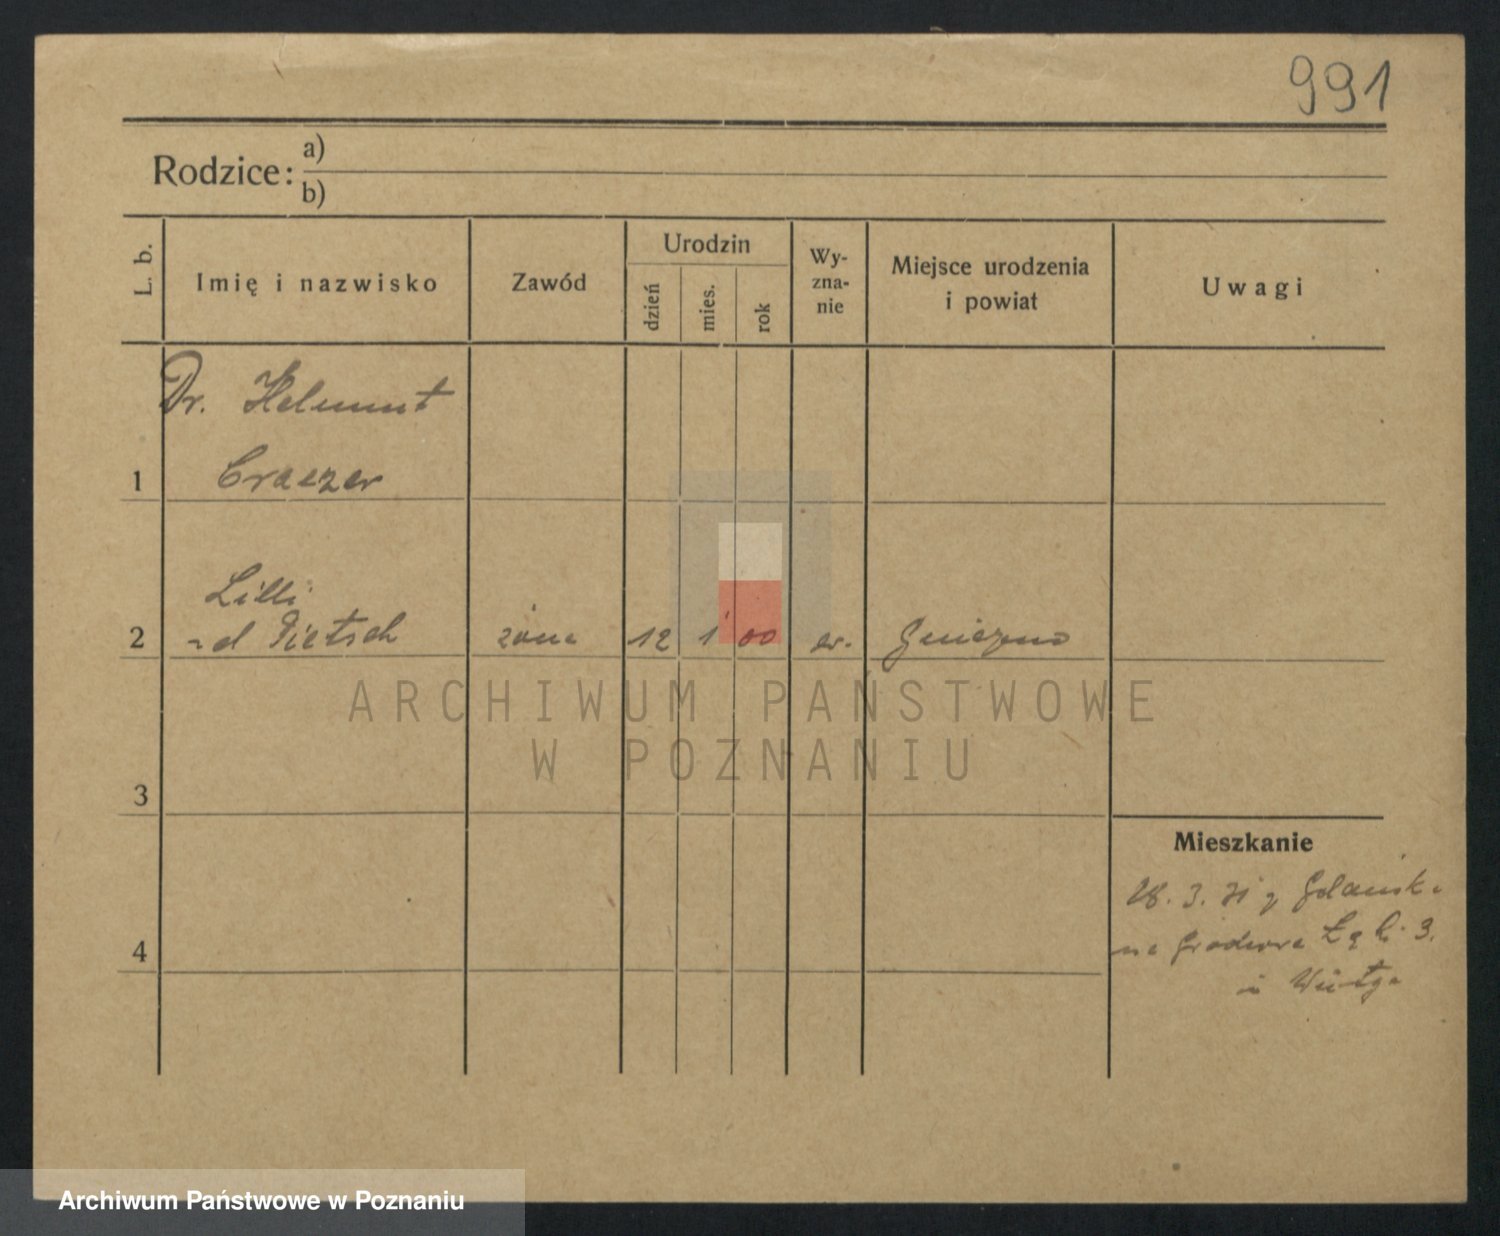 991
Rodzice: a)
b)
L. b.
Imię i nazwisko
Zawód
Urodzin
dzień
mies.
rok
Wy-
zna-
nie
Miejsce urodzenia
i powiat
Uwagi
Dr. Helmut
1 Craezer
Lilli
2 zd Pietsch żona 12 1 00 ew. Gniezno
ARCHIWUM PAŃSTWOWE
W POZNANIU
3
Mieszkanie
28. 3. 31 z Gdańska
na Grodowe Łąki 3.
4
u
Archiwum Państwowe w Poznaniu